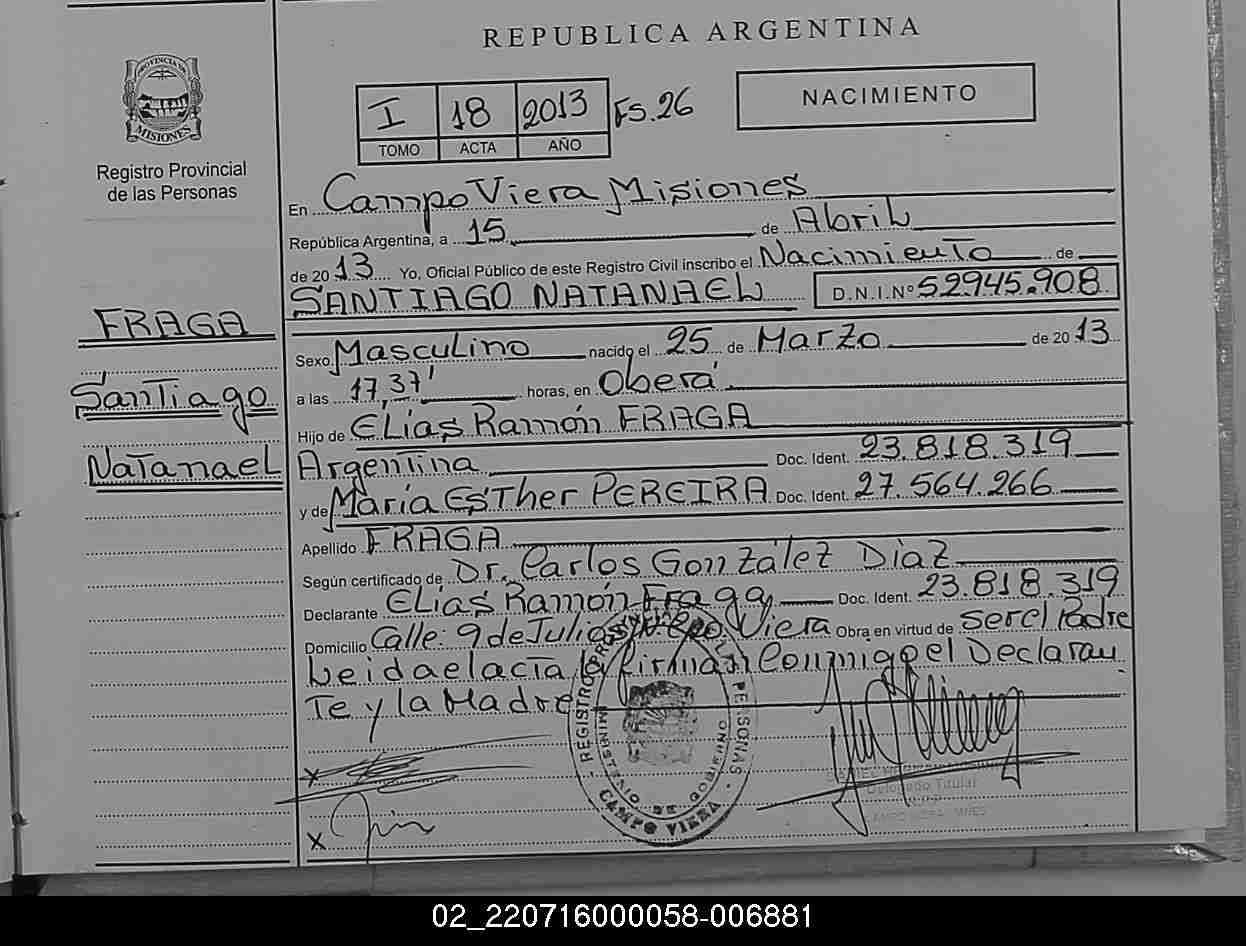 REPUBLICA ARGENTINA
PROVINCIA DE
MISIONES
Registro Provincial
de las Personas
I 18 2013 Fs. 26
TOMO ACTA AÑO
NACIMIENTO
En Campo Viera Misiones
República Argentina, a 15 de Abril
de 2013 Yo, Oficial Público de este Registro Civil inscribo el Nacimiento de
SANTIAGO NATANAEL D.N.I.Nº 52945.908
FRAGA
Santiago
Natanael
Sexo Masculino nacido el 25 de Marzo de 2013
a las 17,37' horas, en Oberá.
Hijo de Elías Ramón FRAGA
Argentina Doc. Ident. 23.818.319
y de María Esther PEREIRA Doc. Ident. 27.564.266
Apellido FRAGA
Según certificado de Dr. Carlos González Diaz
Declarante Elías Ramón Fraga Doc. Ident. 23.818.319
Domicilio Calle: 9 de Julio Viera Obra en virtud de ser el Padre
Leida el acta la firman Conmigo el Declaran
Te y la Madre
x
x
REGISTRO PERSONAS
MINISTERIO DE GOBIERNO
CAMPO VIERA
Delegado Titular
02_220716000058-006881